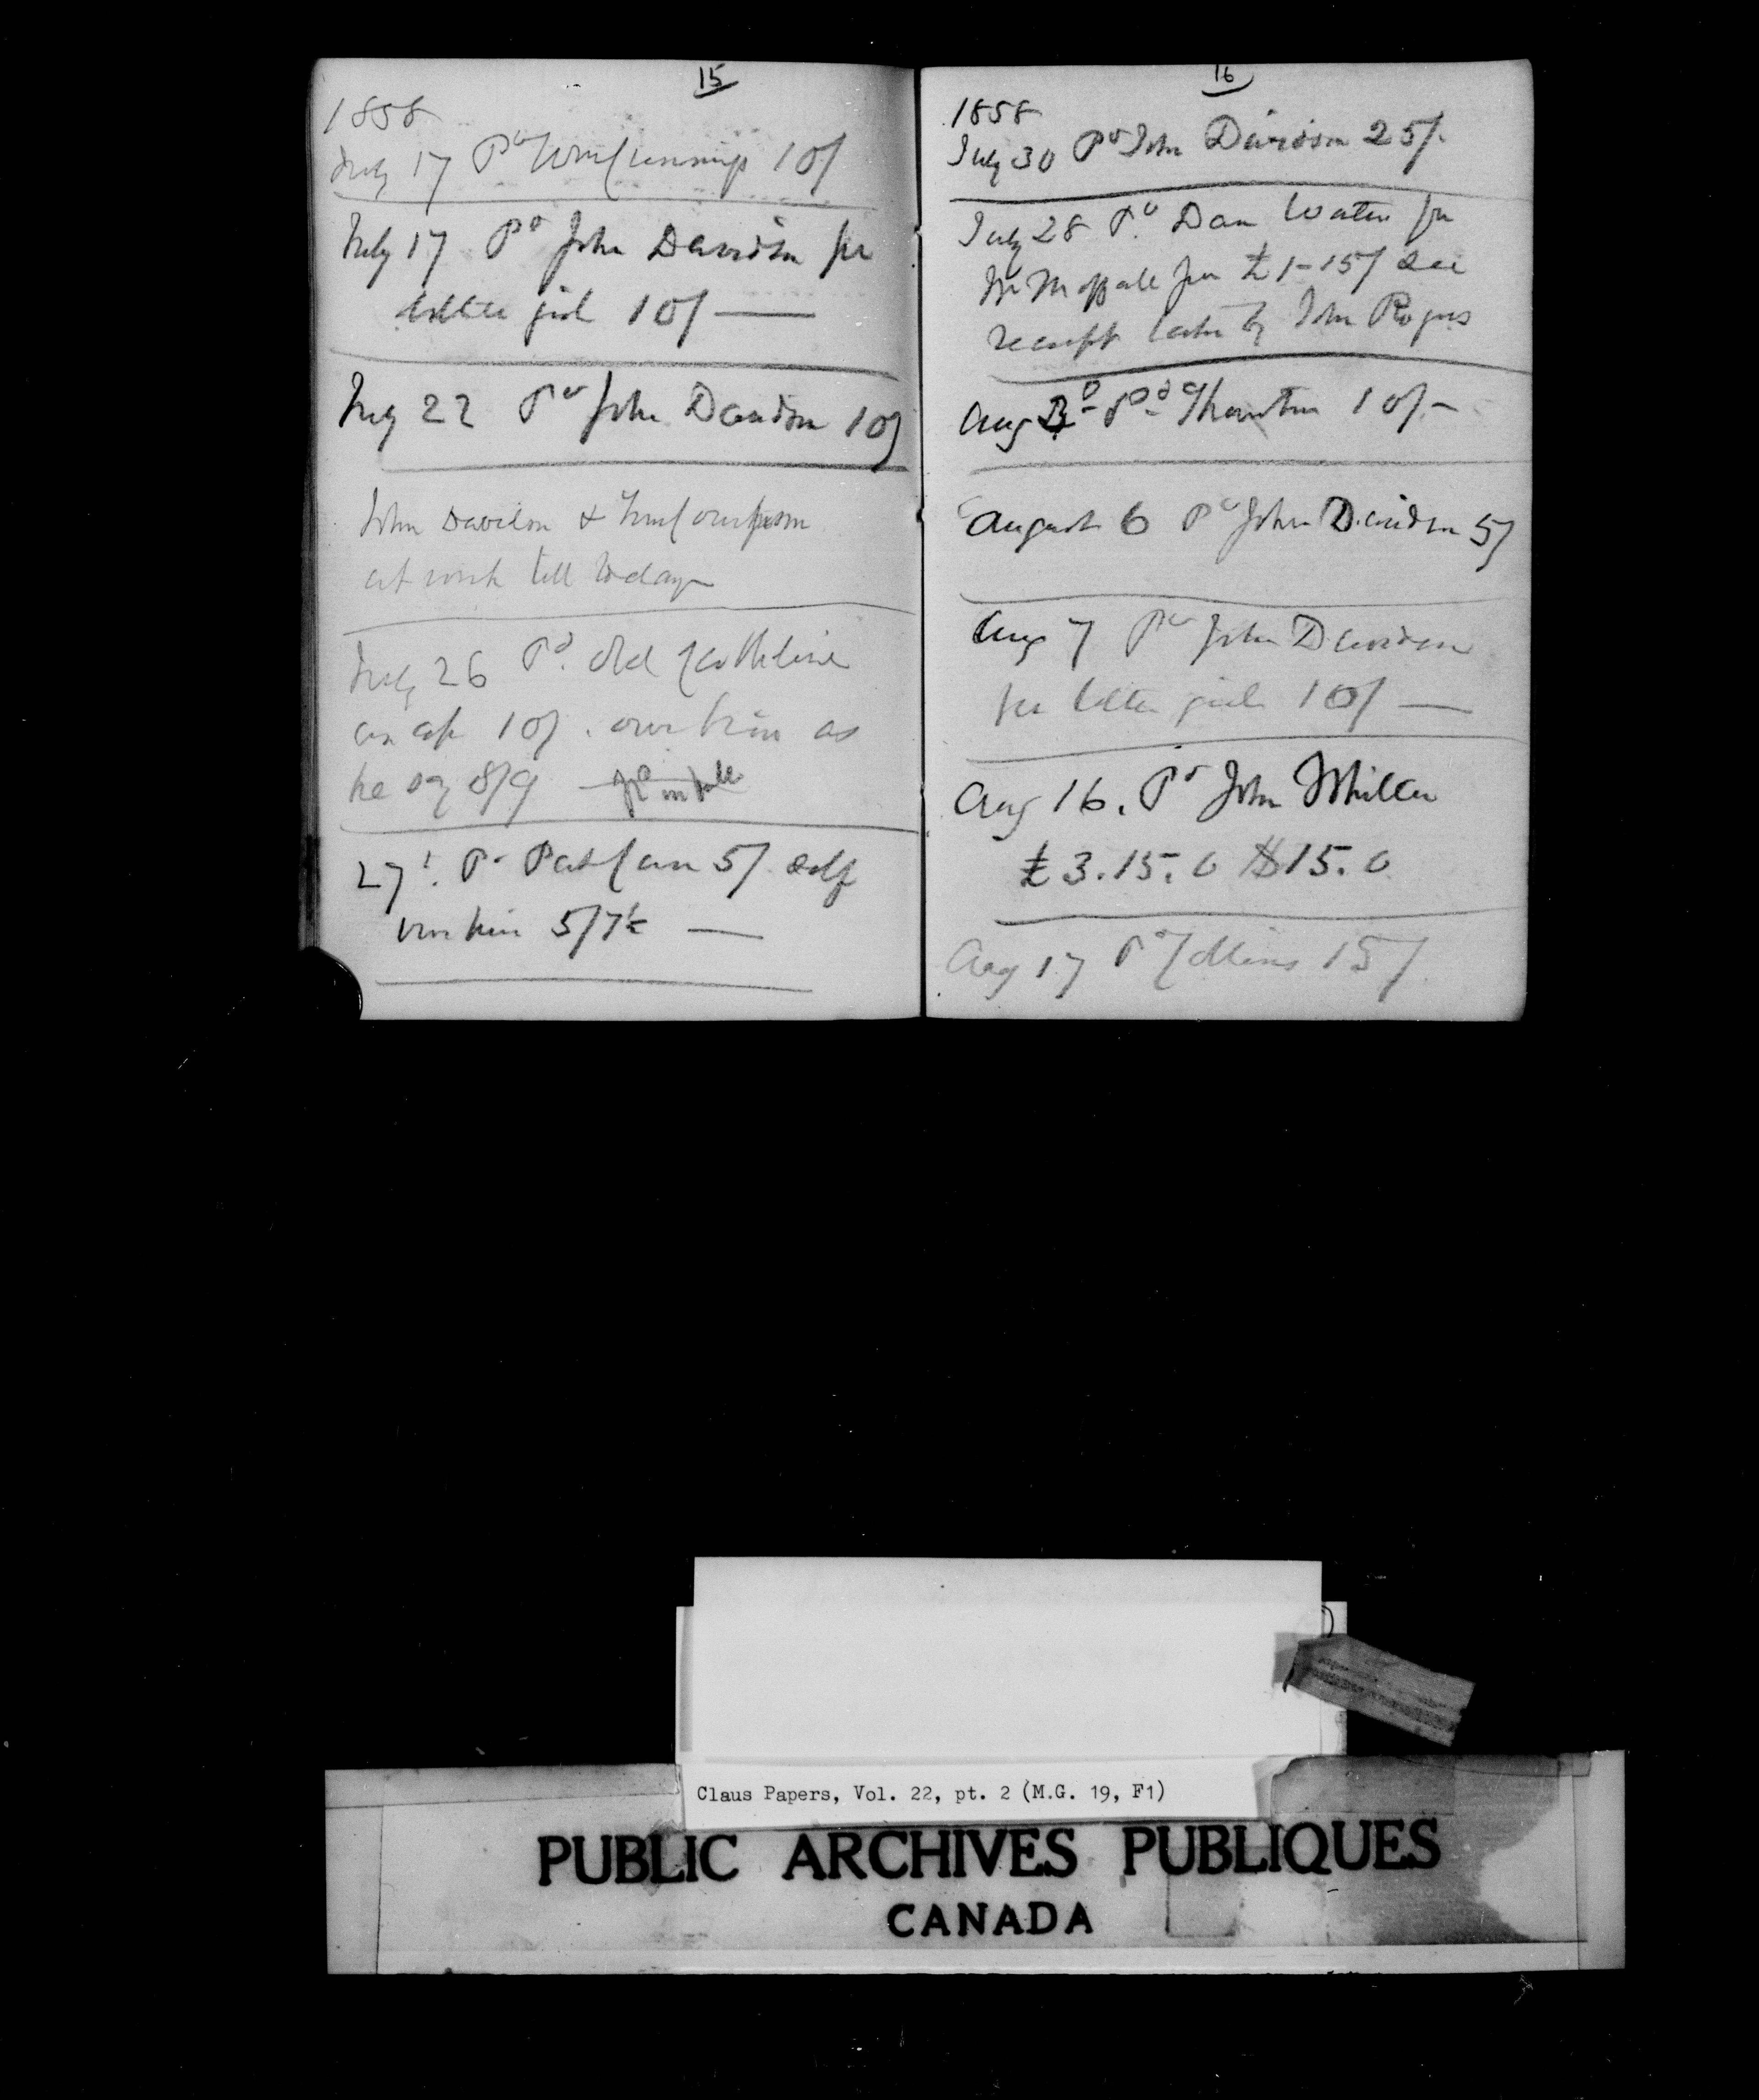 15
1858
July 17 Pd Wm Cummings 10/
July 17 Pd John Davidson per
little girl 10/ —
July 22 Pd John Davidson 10/
John Davidson &
at work till today
July 26 Pd. Old
10/. owe him as
he say 8/9 — in full
27t. Pd Pat 5/. self
owe him 5/7½ —
16
1858
July 30 Pd John Davidson 25/.
July 28 Pd. Dan for
Mr Moffatt for £1-15/ see
receipt by John Rogers
Aug 3d Pd Thornton 10/-
August 6 Pd John Davidson 5/
Aug 7 Pd John Davidson
per little girl 10/ —
Aug 16. Pd John Miller
£3.15.0 $15.0
Aug 17 Pd Collins 15/.
Claus Papers, Vol. 22, pt. 2 (M.G. 19, F1)
PUBLIC ARCHIVES PUBLIQUES
CANADA